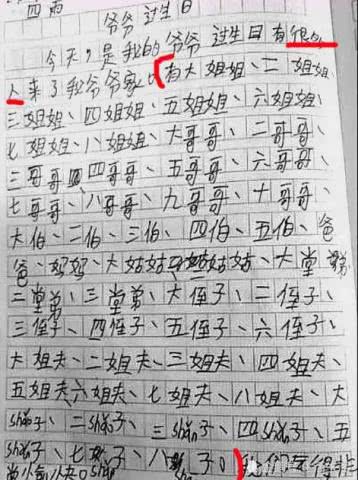 四雨
爷爷过生日
今天，是我的爷爷过生日有很多
人来了我爷爷家，有大姐姐、二姐姐、
三姐姐、四姐姐、五姐姐、六姐姐、
七姐姐、八姐姐、大哥哥、二哥哥、
三哥哥、四哥哥、五哥哥、六哥哥、
七哥哥、八哥哥、九哥哥、十哥哥、
大伯、二伯、三伯、四伯、五伯、爸
爸、妈妈、大姑姑、姑姑、大堂弟、
二堂弟、三堂弟、大侄子、二侄子、
三侄子、四侄子、五侄子、六侄子、
大姐夫、二姐夫、三姐夫、四姐夫、
五姐夫、六姐夫、七姐夫、八姐夫、大
shěn子、二shěn子、三shěn子、四shěn子、五
shěn子、七子、八子。我们玩得非